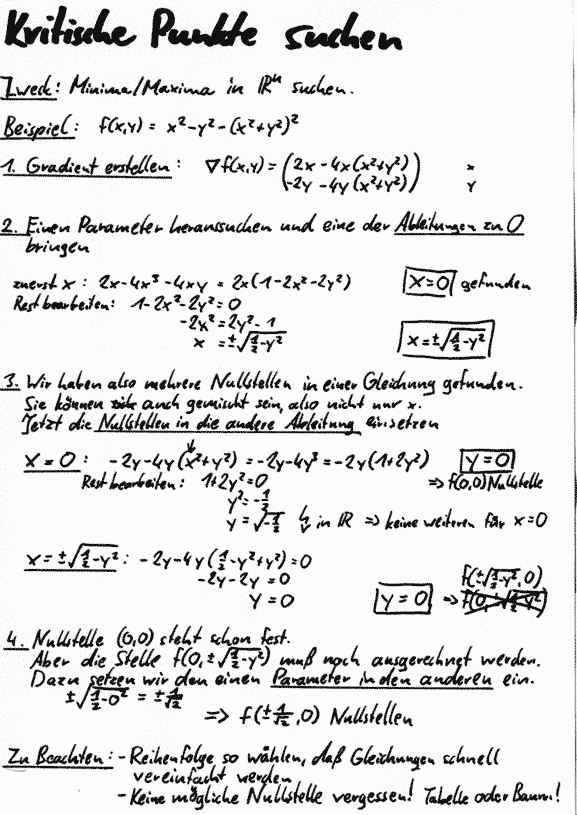 Kritische Punkte suchen
Zweck: Minima/Maxima in ℝⁿ suchen.
Beispiel: f(x,y) = x²-y²-(x²+y²)²
1. Gradient erstellen: ∇f(x,y) = (2x - 4x(x²+y²)) x
(-2y - 4y(x²+y²)) y
2. Einen Parameter heraussuchen und eine der Ableitungen zu 0
bringen
zuerst x: 2x-4x³-4xy = 2x(1-2x²-2y²) x=0 gefunden
Rest bearbeiten: 1-2x²-2y²=0
-2x²=2y²-1
x = ±√(1/2-y²) x=±√(1/2-y²)
3. Wir haben also mehrere Nullstellen in einer Gleichung gefunden.
Sie können auch gemischt sein, also nicht nur x.
Jetzt die Nullstellen in die andere Ableitung einsetzen
x=0: -2y-4y(x²+y²) = -2y-4y³ = -2y(1+2y²) y=0
Rest bearbeiten: 1+2y²=0 ⇒ f(0,0) Nullstelle
y²=-1/2
y=√-1/2 ↯ in ℝ ⇒ keine weiteren für x=0
x=±√(1/2-y²): -2y-4y(1/2-y²+y²)=0
-2y-2y=0 f(±√(1/2-y²),0)
y=0 y=0 ⇒ f(0,±√(1/2-y²))
4. Nullstelle (0,0) steht schon fest.
Aber die Stelle f(0,±√(1/2-y²)) muß noch ausgerechnet werden.
Dazu setzen wir den einen Parameter in den anderen ein.
±√(1/2-0²) = ±1/√2
⇒ f(±1/√2,0) Nullstellen
Zu Beachten: - Reihenfolge so wählen, daß Gleichungen schnell
vereinfacht werden
- Keine mögliche Nullstelle vergessen! Tabelle oder Baum!